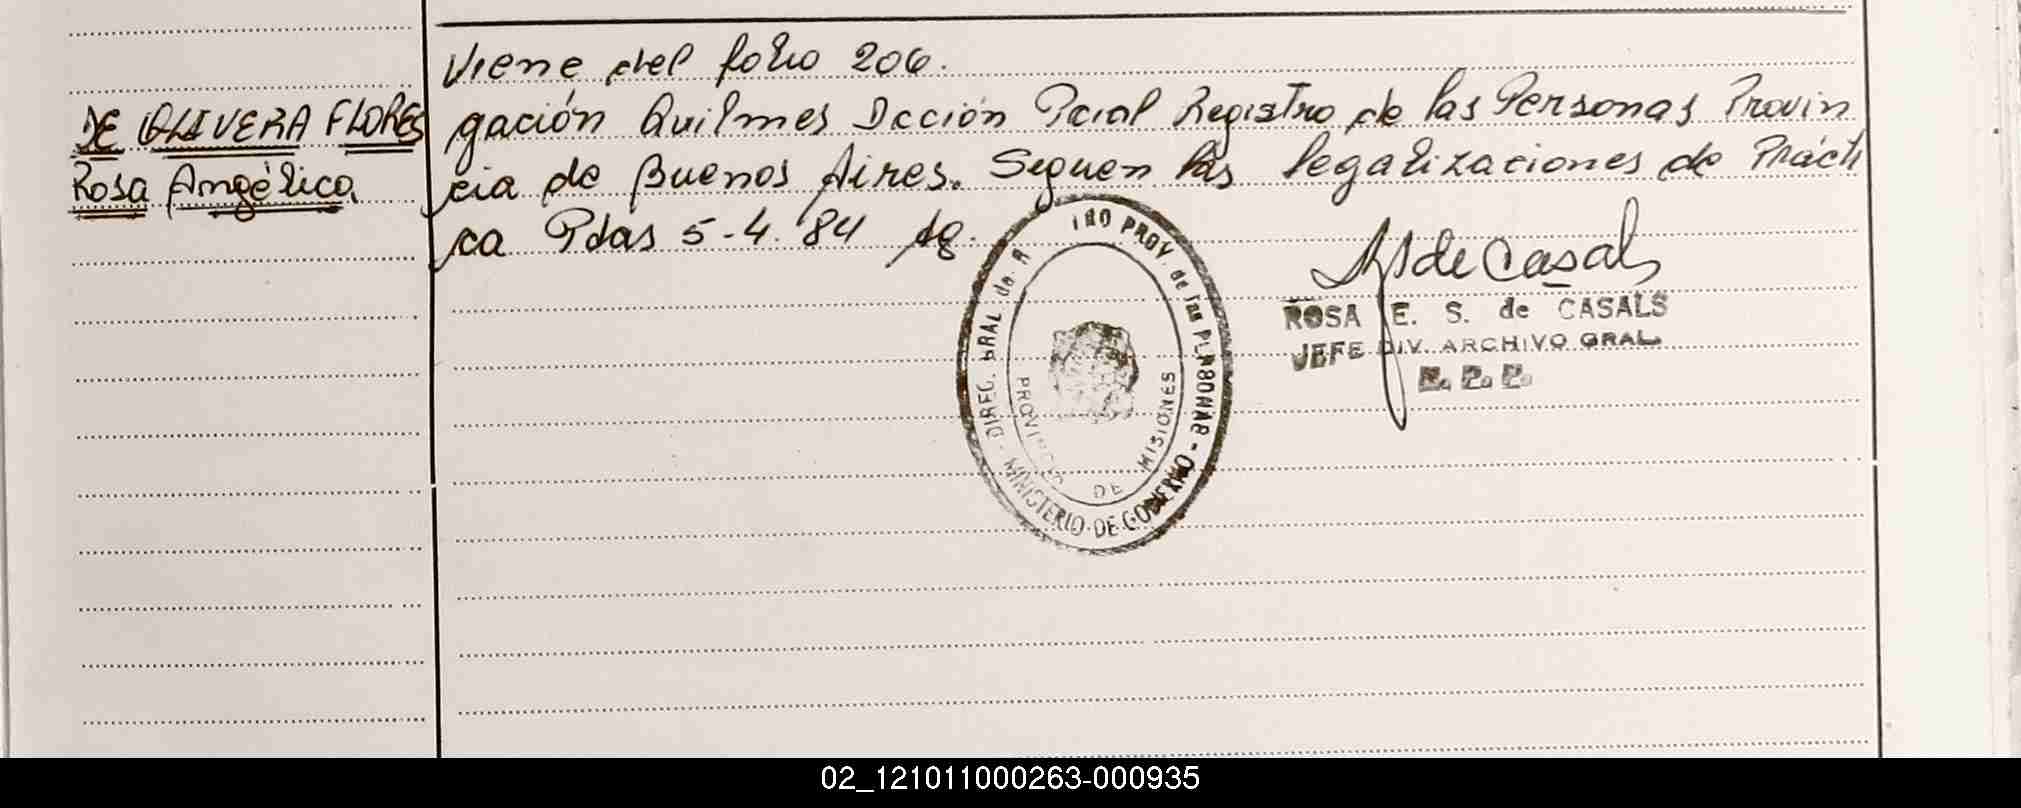 Viene del folio 206.
DE OLIVERA FLORES
Rosa Angélica
gación Quilmes Dcción Pcial Registro de las Personas Provin
cia de Buenos Aires. Siguen las legalizaciones de Prácti
ca Pdas 5-4-84
de Casals
ROSA E. S. de CASALS
JEFE DIV. ARCHIVO GRAL.
DIREC. GRAL de PROV. de las PERSONAS - MINISTERIO DE GOBIERNO
PROVINCIA DE MISIONES
02_121011000263-000935